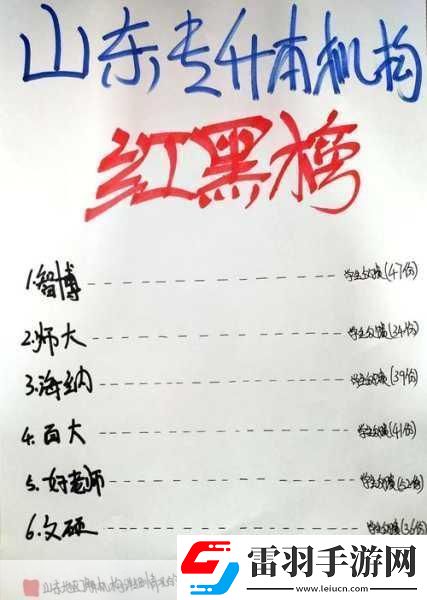 山东专升本机构
红黑榜
1.智博 学生反馈(47份)
2.师大 学生反馈(34份)
3.海纳 学生反馈(39份)
4.百大 学生反馈(41份)
5.好老师 学生反馈(52份)
6.文硕 学生反馈(36份)
山东地区
雷羽手游网
www.leiucn.com